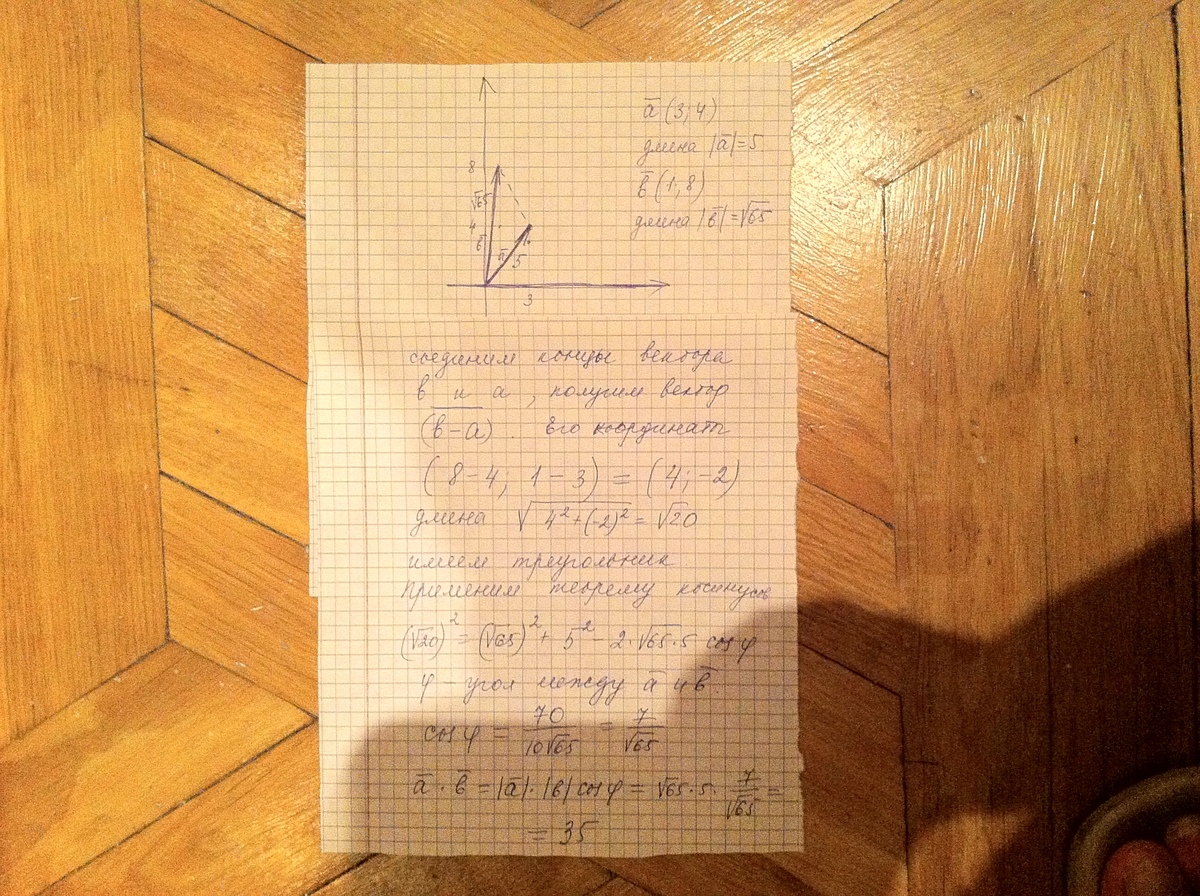 8
√65
4
b̄
ā
5
3
ā (3; 4)
длина |ā| = 5
b̄ (1; 8)
длина |b̄| = √65
соединим концы вектора
в и а, получим вектор
(b̅-̅a̅). Его координаты
(8-4; 1-3) = (4; -2)
длина √(4²+(-2)²) = √20
имеем треугольник.
Применим теорему косинусов
(√20)² = (√65)² + 5² - 2·√65·5 cos φ
φ - угол между ā и b̄.
cos φ = 70/10√65 = 7/√65
ā · b̄ = |ā|·|b| cos φ = √65·5·7/√65 =
= 35